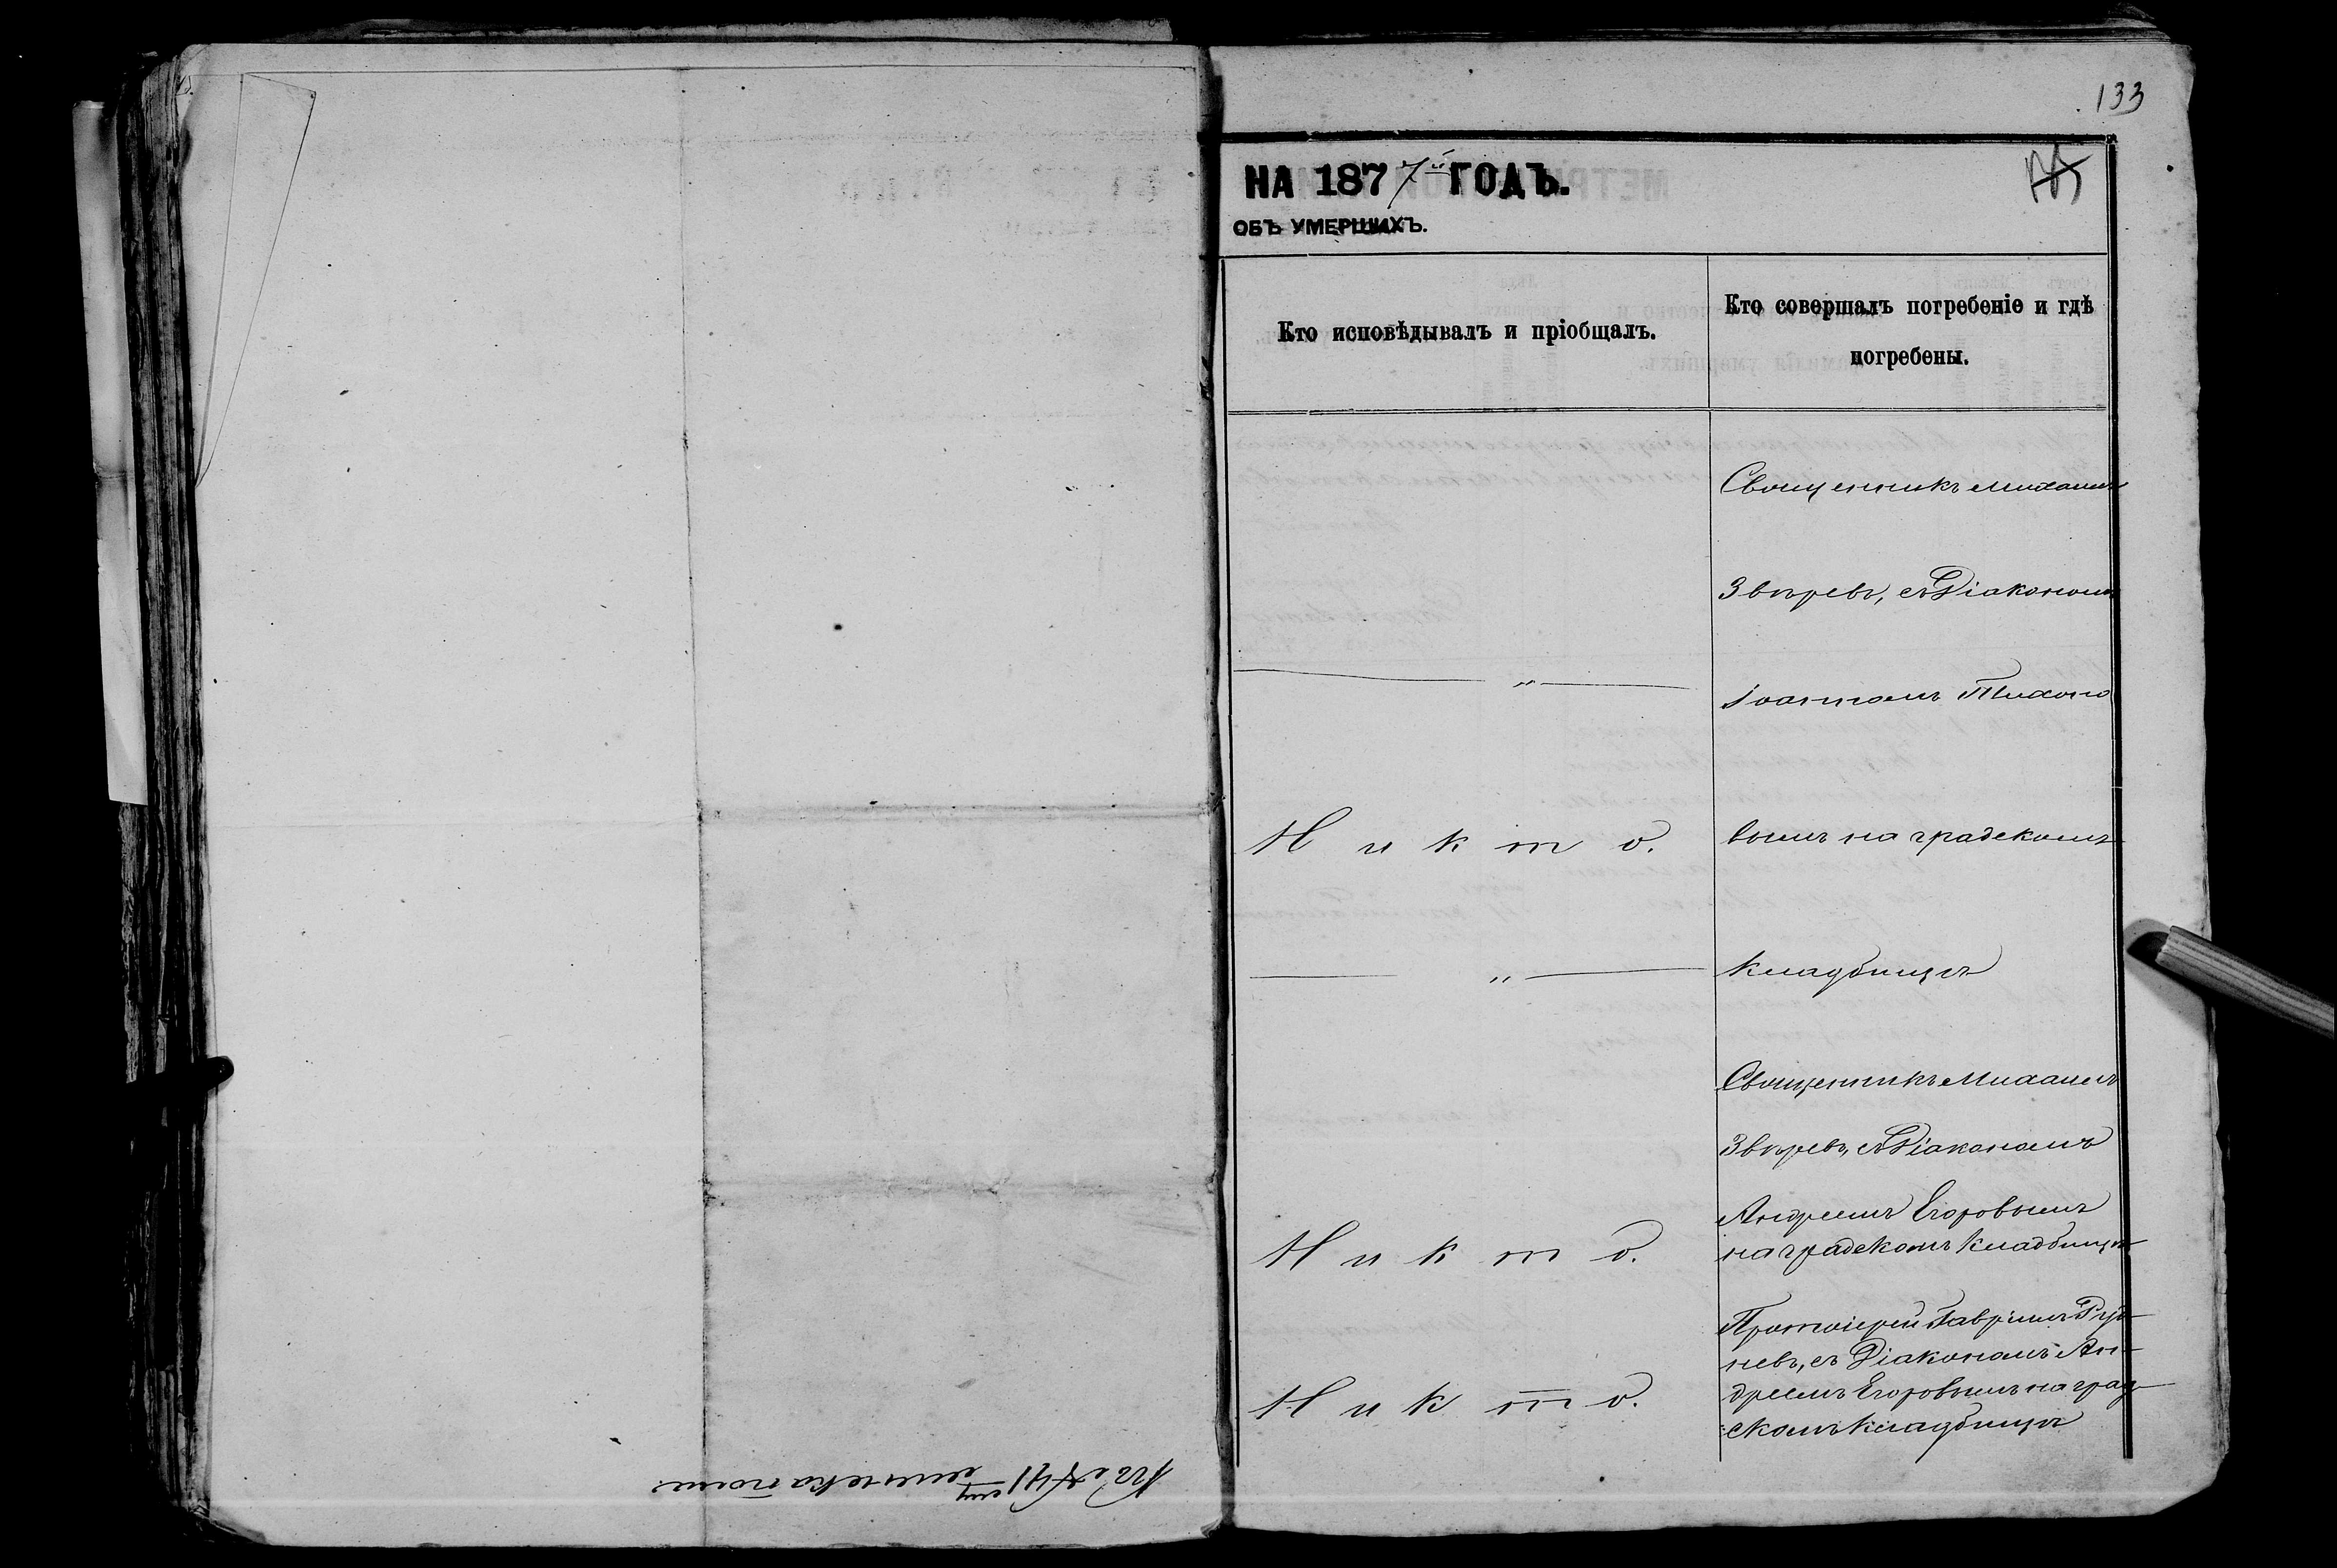 133
НА 1877й ГОДЪ.
ОБЪ УМЕРШИХЪ.
Кто исповѣдывалъ и пріобщалъ.
Кто совершалъ погребеніе и гдѣ
погребены.
Священникъ Михаилъ
Звѣревъ, съ Діакономъ
— " —
Іоанномъ Тихоно
Никто.
вымъ на градскомъ
— " —
кладбищѣ
Священникъ Михаилъ
Звѣревъ, съ Діакономъ
Андреемъ Егоровымъ
Никто.
на градскомъ кладбищѣ
Протоіерей Гавріилъ Руд-
невъ, съ Діакономъ Ан-
Никто.
дреемъ Егоровымъ на град-
скомъ кладбищѣ
Къ № 41